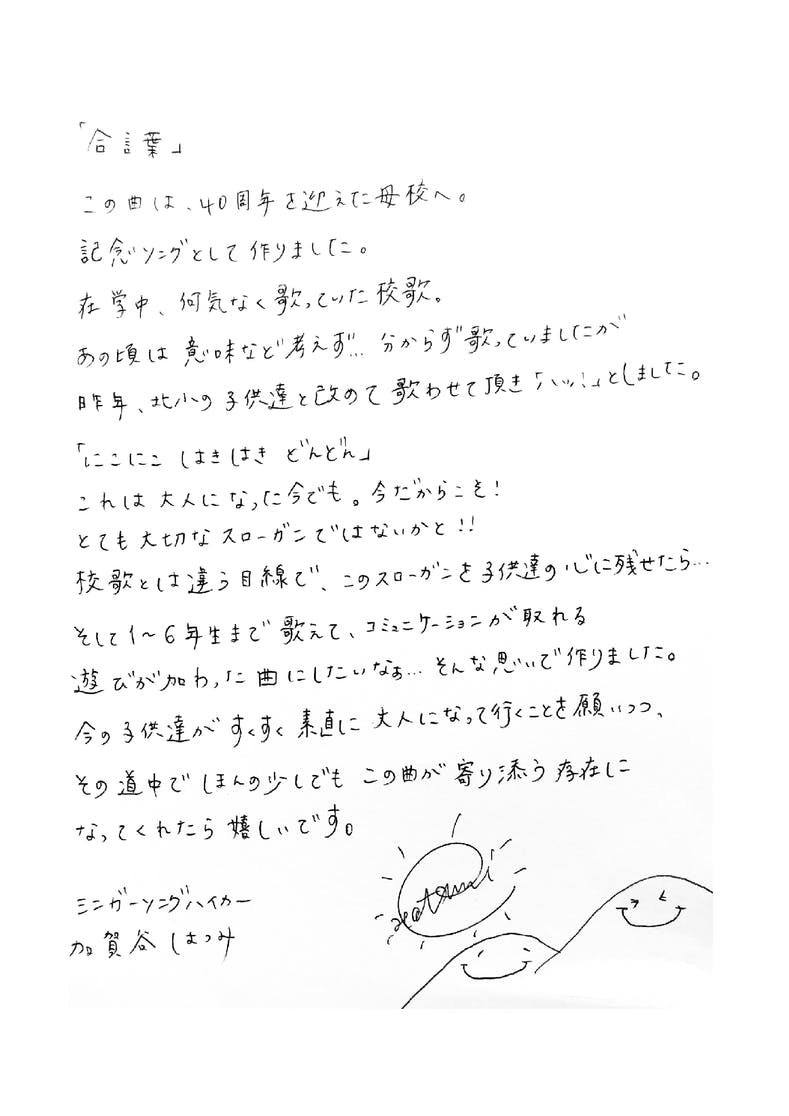 「合言葉」
この曲は、40周年を迎えた母校へ。
記念ソングとして作りました。
在学中、何気なく歌っていた校歌。
あの頃は意味など考えず… 分からず歌っていましたが
昨年、北小の子供達と改めて歌わせて頂き「ハッ!」としました。
「にこにこ はきはき どんどん」
これは大人になった今でも。今だからこそ!
とても大切なスローガンではないかと!!
校歌とは違う目線で、このスローガンを子供達の心に残せたら…
そして1〜6年生まで歌えて、コミュニケーションが取れる
遊びが加わった曲にしたいなぁ… そんな思いで作りました。
今の子供達がすくすく素直に大人になって行くことを願いつつ、
その道中でほんの少しでもこの曲が寄り添う存在に
なってくれたら嬉しいです。
シンガーソングハイカー
加賀谷はつみ